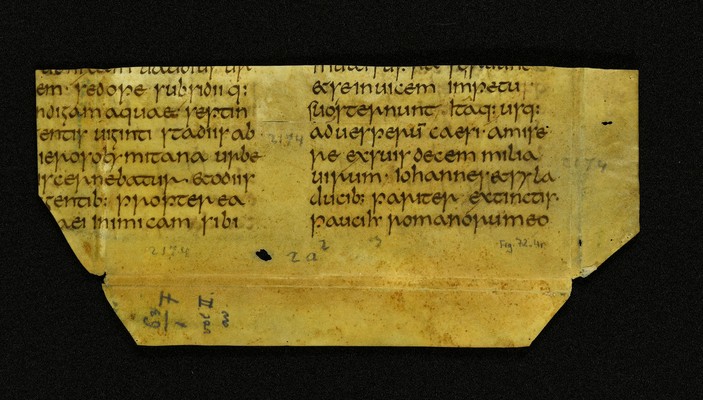 em· sed ope subsidiiq:
ndigam aquae· septin
entis uiginti stadiis ab
ierosolimitana urbe
iscernebatur· et odiis
gentib: propter ea
aei inimicam sibi
et se inuicem impetu
suo sternunt· Itaq: usq:
ad uesperū caesi· amise
re ex suis decem milia
uirum· Iohannes et syla
ducib: pariter extinctis·
paucis romanorum eo
2174
2174
2174
2a
2
Frg. 72. 4r
vol II.